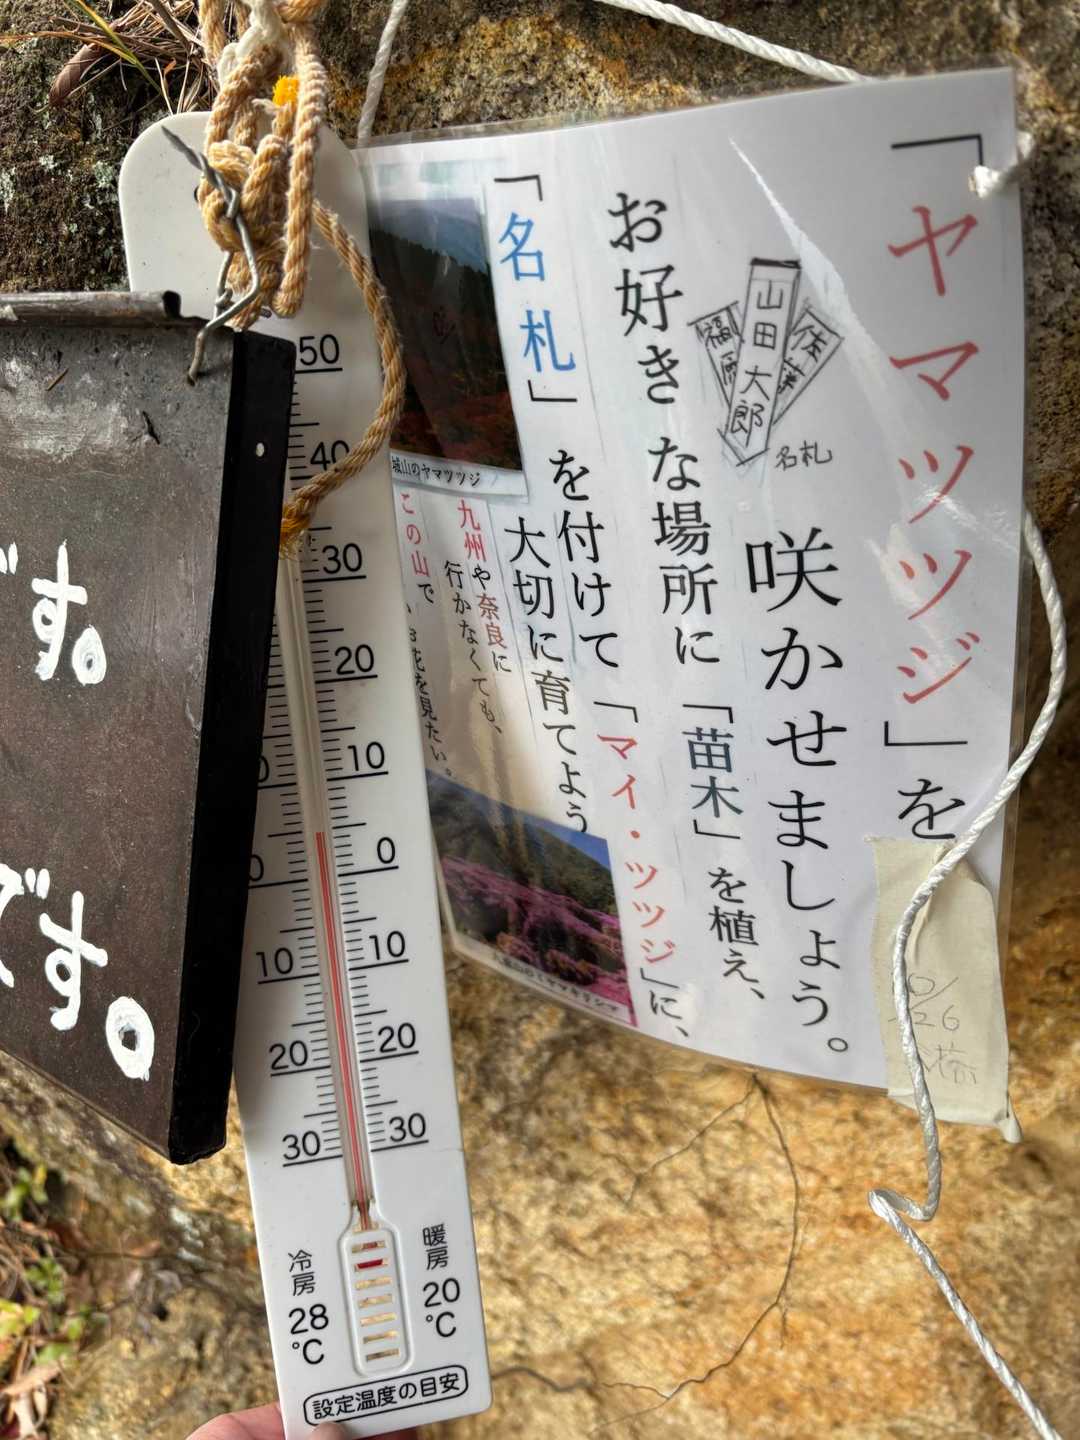 「ヤマツツジ」を
咲かせましょう。
山田大郎
佐藤
名札
お好きな場所に「苗木」を植え、
「名札」を付けて「マイ・ツツジ」に、
大切に育てよう
城山のヤマツツジ
九州や奈良に
行かなくても、
この山で
お花を見たい。
50
40
30
20
10
0
10
20
30
10
20
30
冷房
28
℃
暖房
20
℃
設定温度の目安
す。
です。
10/
26